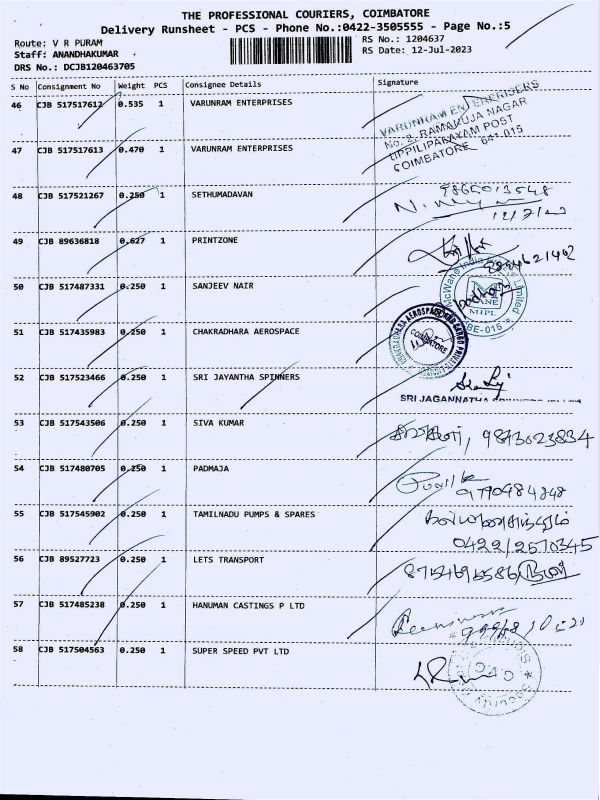 THE PROFESSIONAL COURIERS, COIMBATORE
Delivery Runsheet - PCS - Phone No.:0422-3505555 - Page No.:5
Route: V R PURAM
RS No.: 1204637
Staff: ANANDHAKUMAR
RS Date: 12-Jul-2023
DRS No.: DCJB120463705
S No Consignment No Weight PCS Consignee Details Signature
46 CJB 517517612 0.535 1 VARUNRAM ENTERPRISES
VARUNRAM ENTERPRISES
No. 2, RAMANUJA NAGAR
UPPILIPALAYAM POST
COIMBATORE - 641 015
47 CJB 517517613 0.470 1 VARUNRAM ENTERPRISES
48 CJB 517521267 0.250 1 SETHUMADAVAN
49 CJB 89636818 0.627 1 PRINTZONE
9894621462
50 CJB 517487331 0.250 1 SANJEEV NAIR
McWane India Private Limited
MIPL
CBE-015
51 CJB 517435983 0.250 1 CHAKRADHARA AEROSPACE
COIMBATORE
52 CJB 517523466 0.250 1 SRI JAYANTHA SPINNERS
SRI JAGANNATHA
53 CJB 517543506 0.250 1 SIVA KUMAR
9873023834
54 CJB 517480705 0.250 1 PADMAJA
55 CJB 517545902 0.250 1 TAMILNADU PUMPS & SPARES
0422/2570345
56 CJB 89527723 0.250 1 LETS TRANSPORT
57 CJB 517485238 0.250 1 HANUMAN CASTINGS P LTD
58 CJB 517504563 0.250 1 SUPER SPEED PVT LTD